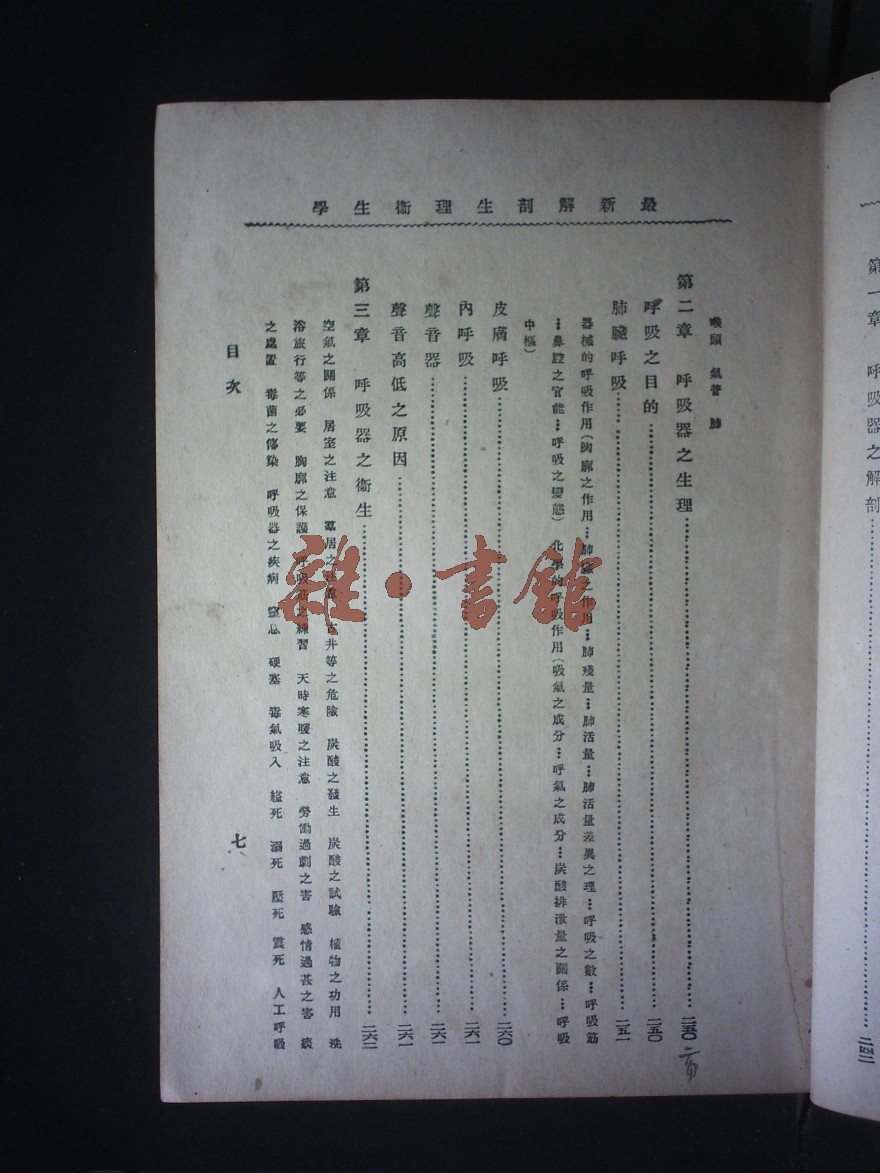 最新解剖生理衞生學
喉頭　氣管　肺
第二章　呼吸器之生理…二五〇
呼吸之目的…二五〇
肺臟呼吸…二五一
器械的呼吸作用(胸廓之作用…肺臟之作用…肺殘量…肺活量…肺活量差異之理…呼吸之數…呼吸筋
…鼻腔之官能…呼吸之變態)　化學的呼吸作用(吸氣之成分…呼氣之成分…炭酸排泄量之關係…呼吸
中樞)
皮膚呼吸…二六〇
內呼吸…二六一
聲音器…二六一
聲音高低之原因…二六一
第三章　呼吸器之衞生…二六二
空氣之關係　居室之注意　羣居之注意　古井等之危險　炭酸之發生　炭酸之試驗　植物之功用　洗
浴旅行等之必要　胸廓之保護　呼吸筋之練習　天時寒暖之注意　勞働過劇之害　感情過甚之害　痰
之處置　毒菌之傳染　呼吸器之疾病　窒息　硬塞　毒氣吸入　縊死　溺死　壓死　震死　人工呼吸
目次
七
第一章　呼吸器之解剖…二四二
雜·書館